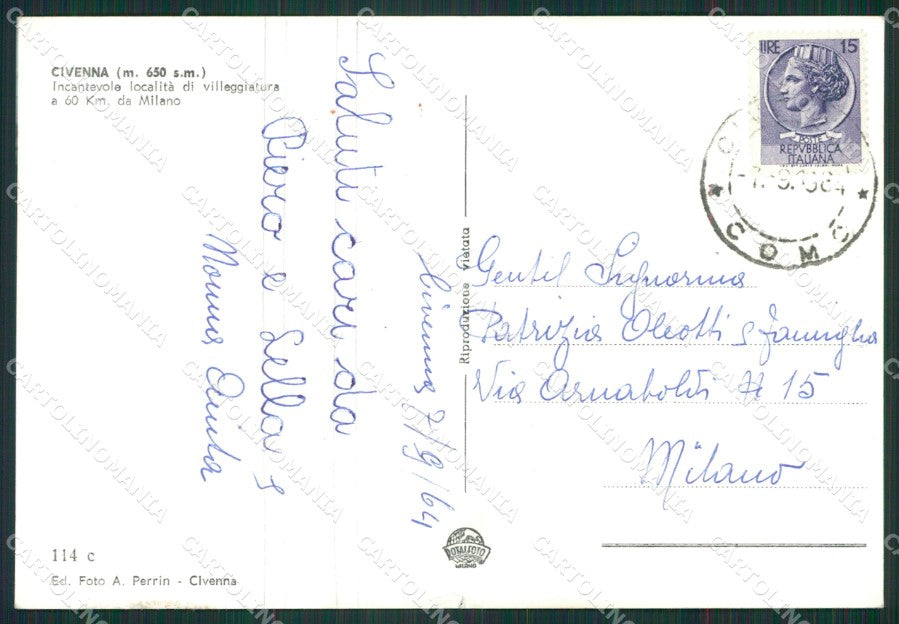 CIVENNA (m. 650 s.m.)
Incantevole località di villeggiatura
a 60 Km. da Milano
Saluti cari da
Piero e Lella e
Nonna Anita
Civenna 7/9/64
Riproduzione vietata
LIRE 15
POSTE
REPVBBLICA
ITALIANA
COMO
Gentil Signorina
Patrizia Oleotti e famiglia
Via Arnaboldi N 15
Milano
TOTALFOTO
MILANO
114 c
Ed. Foto A. Perrin - Civenna
CARTOLINOMANIA